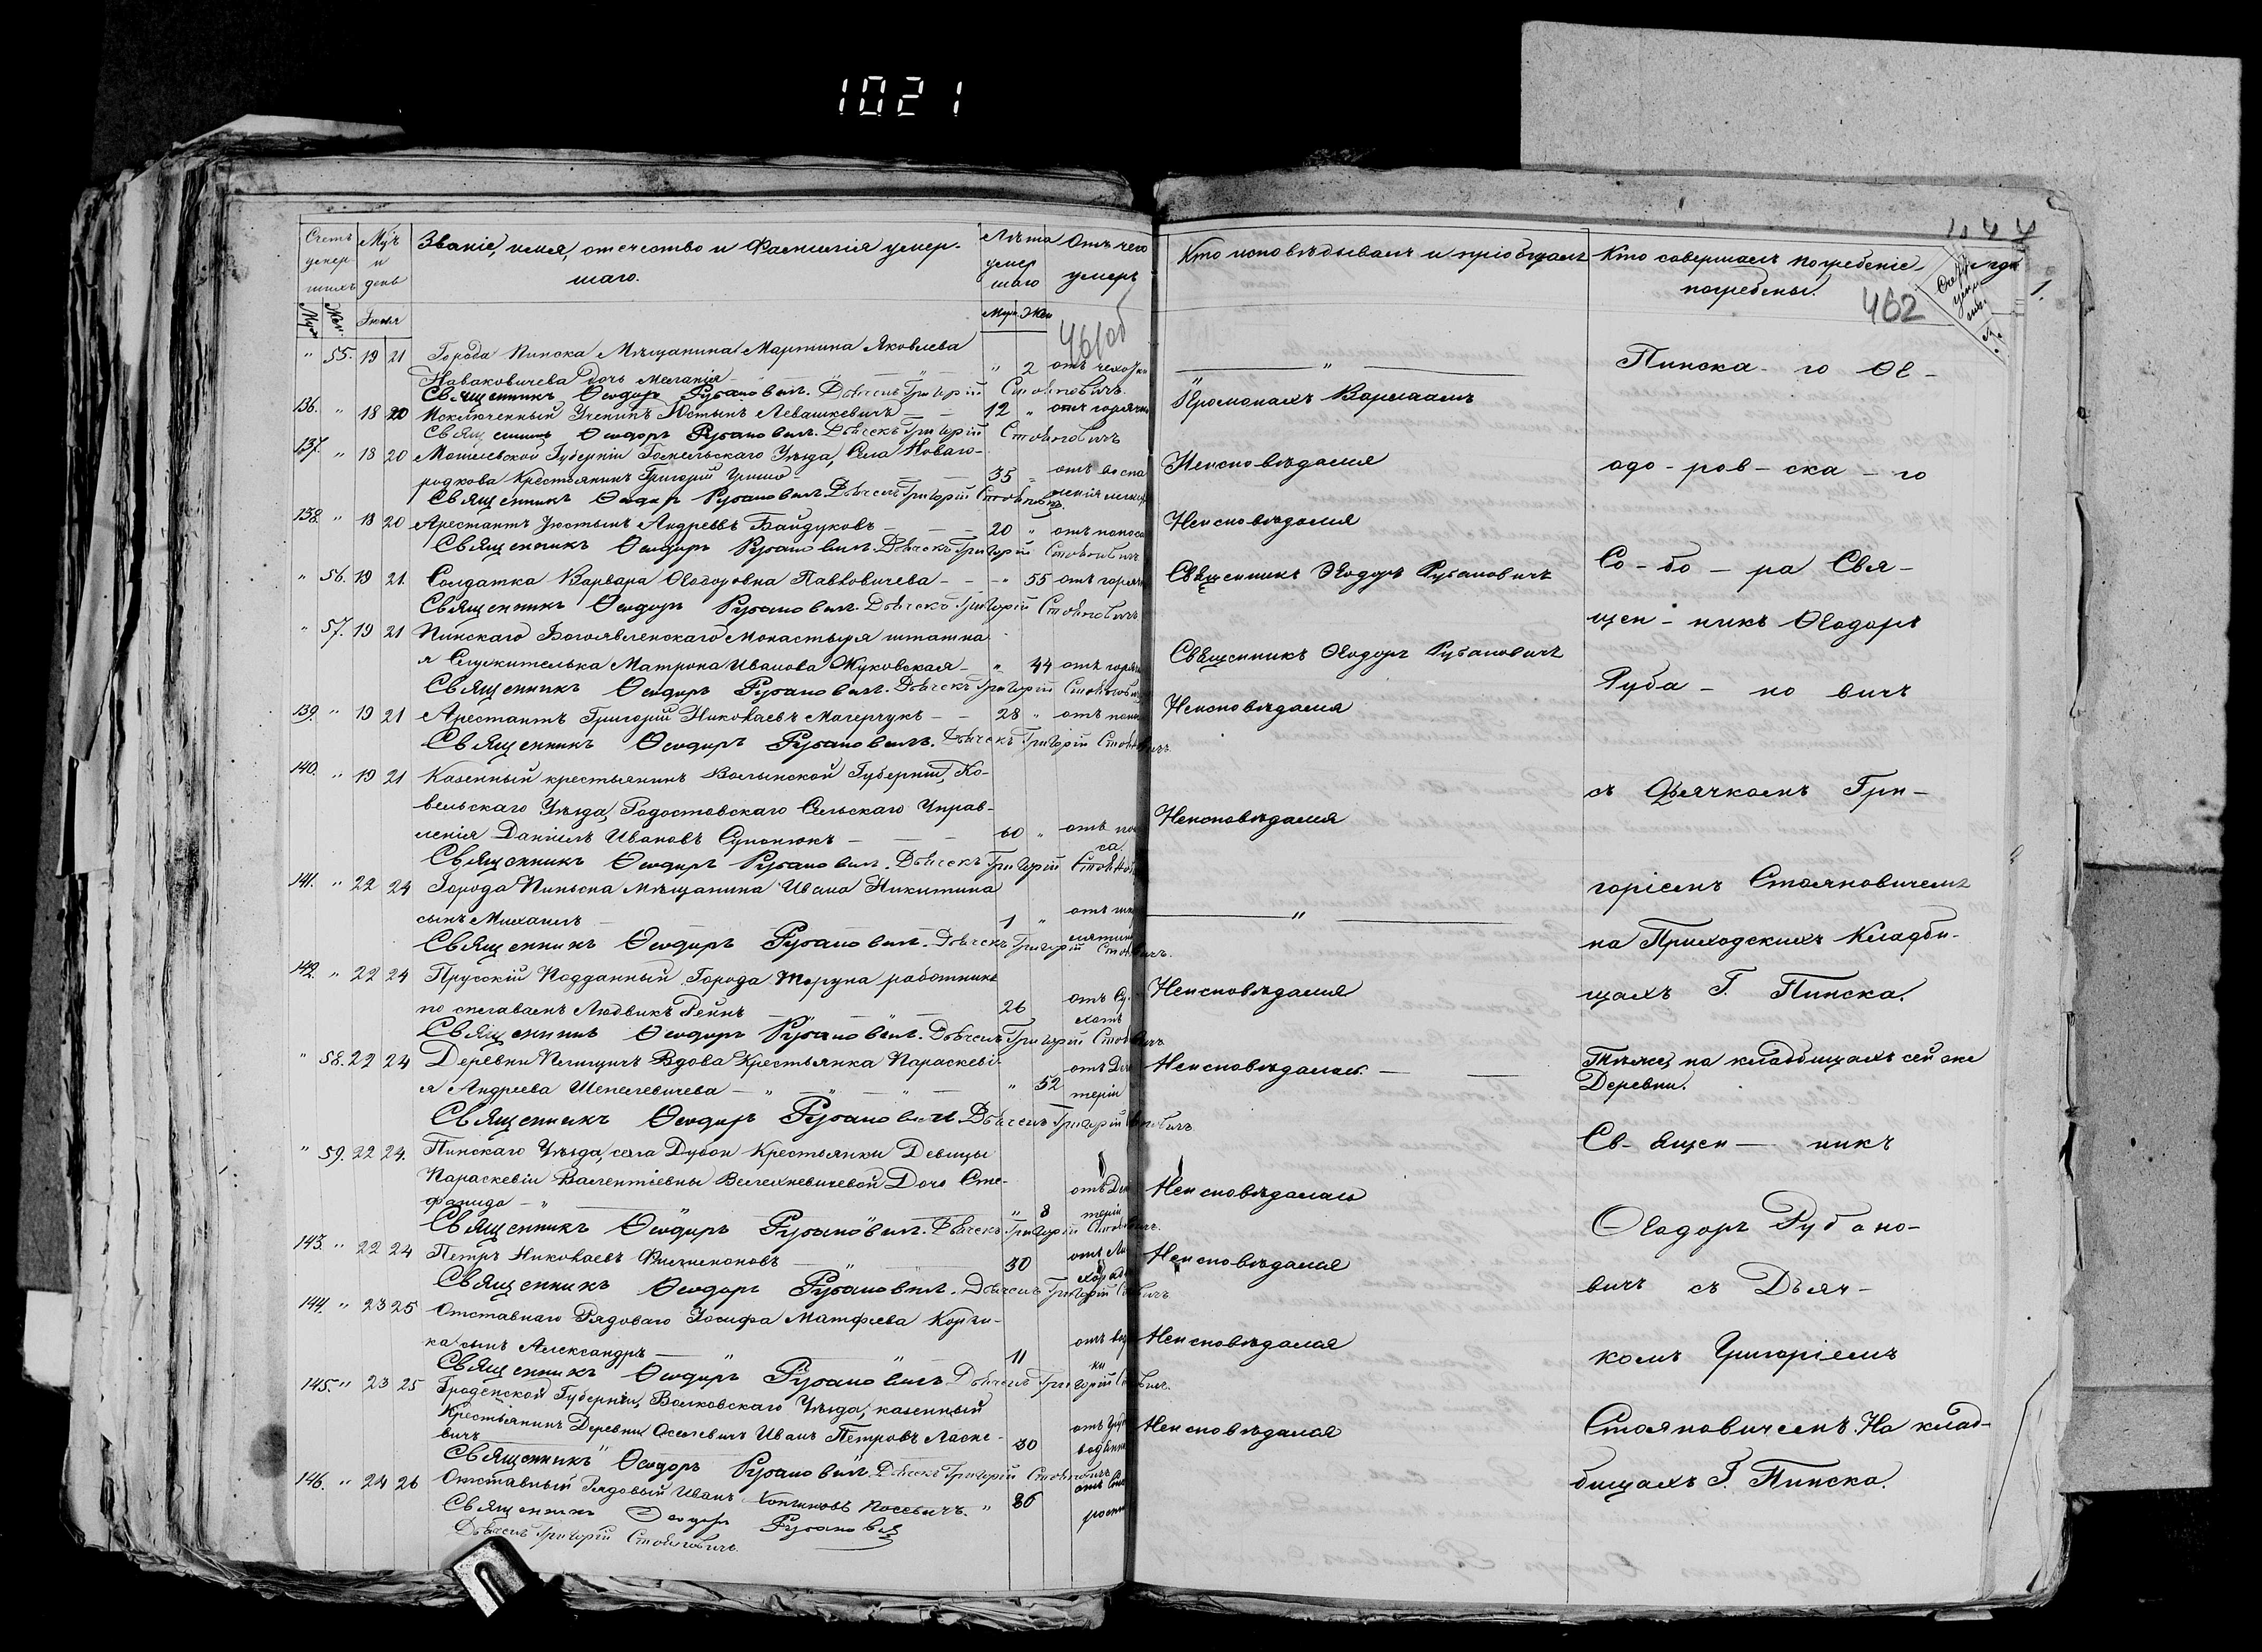 1021
Счетъ умер- шихъ
Муж. Жен.
Мѣ-ъ и день
Званіе, имя, отечество и Фамилія умер-
шаго.
Лѣта умер шаго
Муж. Жен
Отъ чего умеръ
461об
" 55. 19 21 Города Пинска Мѣщанина Мартина Яковлева
Наваковичева дочь Меланія " 2 отъ
Священникъ Ѳеодоръ Рубановичъ. Дьячекъ Григорій Стояновичъ.
136. " 18 20 Исключенный Ученикъ Юстынъ Левашкевичъ 12 " отъ горячк
Священникъ Ѳеодоръ Рубановичъ. Дьячекъ Григорій Стояновичъ
137. " 18 20 Могилевской Губерніи Гомельского Уѣзда, Села Новаго-
родкова Крестьянинъ Григорій 35 " отъ воспа
ленія
Священникъ Ѳеодоръ Рубановичъ. Дьячекъ Григорій Стояновичъ.
138. " 18 20 Арестантъ Устынъ Андреевъ Байдуковъ 20 " отъ поноса
Священникъ Ѳеодоръ Рубановичъ. Дьячекъ Григорій Стояновичъ
" 56. 19 21. Солдатка Варвара Ѳеодоровна Павловичева " 55 отъ горяч
Священникъ Ѳеодоръ Рубановичъ. Дьячекъ Григорій Стояновичъ
" 57. 19 21 Пинскаго Богоявленскаго Монастыря штатна
я Служителька Матрона Иванова Жуковская " 44 отъ горяч
Священникъ Ѳеодоръ Рубановичъ. Дьячекъ Григорій Стояновичъ
139. " 19 21 Арестантъ Григорій Николаевъ Магерчукъ 28 " отъ
Священникъ Ѳеодоръ Рубановичъ. Дьячекъ Григорій Стояновичъ.
140. " 19 21 Казенный крестьянинъ Волынской Губерніи, Ко-
вельскаго Уѣзда, Радостовскаго Сельскаго Управ-
ленія Даніилъ Ивановъ Супонюкъ 60 " отъ поно
са
Священникъ Ѳеодоръ Рубановичъ. Дьячекъ Григорій Стоянов
141. " 22 24 Города Пинска Мѣщанина Ивана Никитина
сынъ Михаилъ 1 " отъ
Священникъ Ѳеодоръ Рубановичъ. Дьячекъ Григорій Стояновичъ.
142. " 22 24 Прусскій Подданный Города Торуна работникъ
по сплавамъ Людвикъ Рейнъ 26 отъ Су-
хотъ
Священникъ Ѳеодоръ Рубановичъ. Дьячекъ Григорій Стояновичъ
" 58. 22 24 Деревни Вдова Крестьянка Параскеві-
я Андреева Шепелевичева " 52 отъ Дизен
теріи
Священникъ Ѳеодоръ Рубановичъ Дьячекъ Григорій Стояновичъ
" 59. 22 24. Пинскаго Уѣзда, села Дубои Крестьянки Девицы
Параскевіи Валентіевны Велехневичевой Дочь Сте-
фанида " 8 отъ Дизен
теріи
Священникъ Ѳеодоръ Рубановичъ. Дьячекъ Григорій Стояновичъ.
143. " 22 24 Петръ Николаевъ Филимоновъ 30 отъ Ли
хорад
Священникъ Ѳеодоръ Рубановичъ. Дьячекъ Григорій Стояновичъ
144. " 23 25 Отставнаго Рядоваго Іосифа Матфеева
ка сынъ Александръ 11 отъ
Священникъ Ѳеодоръ Рубановичъ Дьячекъ Григорій Стояновичъ.
145. " 23 25 Гроденской Губерніи, Волковскаго Уѣзда, казенный
Крестьянинъ Деревни Оселевичъ Иванъ Петровъ Ласке-
вичъ 30 отъ
Священникъ Ѳеодоръ Рубановичъ Дьячекъ Григорій Стояновичъ
146. " 24 26 Отставный Рядовый Иванъ 86 отъ Ста
рости
Священникъ Ѳеодоръ Рубановичъ
Дьячекъ Григорій Стояновичъ.
Кто исповѣдывалъ и пріобщалъ
Кто совершалъ погребеніе и гдѣ
погребены.
462
"
Іеромонахъ Варлаамъ
Неисповѣдался
Неисповѣдался
Священникъ Ѳеодоръ Рубановичъ
Священникъ Ѳеодоръ Рубановичъ
Неисповѣдался
Неисповѣдался
"
Неисповѣдался
Неисповѣдалась
Неисповѣдалась
Неисповѣдался
Неисповѣдался
Неисповѣдался
Пинска- го Ѳе-
одо-ров-ска-го
Со-бо-ра Свя-
щен-никъ Ѳеодоръ
Руба-но вичъ
съ Дьячкомъ Гри-
горіемъ Стояновичемъ
на Приходскихъ Кладби-
щахъ Г. Пинска.
Тѣже, на кладбищахъ сей же
Деревни.
Св-ящен-никъ
Ѳеодоръ Рубано-
вичъ съ Дьяч-
комъ Григоріемъ
Стояновичемъ. На клад-
бищахъ Г. Пинска.